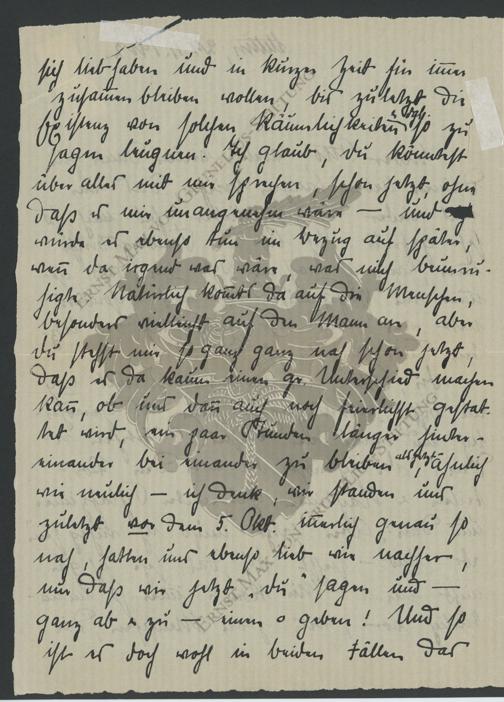 sich lieb haben und in kurzer Zeit für immer
zusammen bleiben wollen, bis zuletzt die
Existenz von solchen Räumlichkeiten so zu
sagen leugnen. Ich glaub, du könntest
über alles mit mir sprechen, schon jetzt, ohne
daß es mir unangenehm wäre — und
würde es ebenso tun in bezug auf später,
wenn da irgend was wäre, was mich beunru-
higte. Natürlich kommts da auf die Menschen,
besonders vielleicht auf den Mann an, aber
du stehst mir so ganz ganz nah schon jetzt,
daß es da kaum einen gr. Unterschied machen
kann, ob uns dann auch noch feierlichst gestat-
tet wird, ein paar Stunden länger hinter-
einander bei einander zu bleiben als jetzt, ähnlich
wie neulich — ich denk, wir standen uns
zuletzt vor dem 5. Okt. innerlich genau so
nah, hatten uns ebenso lieb wie nachher,
nur daß wir jetzt „du" sagen und —
ganz ab u zu — einen o geben! Und so
ist es doch wohl in beiden Fällen das
ERNST MAX VON GRUNELIUS-STIFTUNG